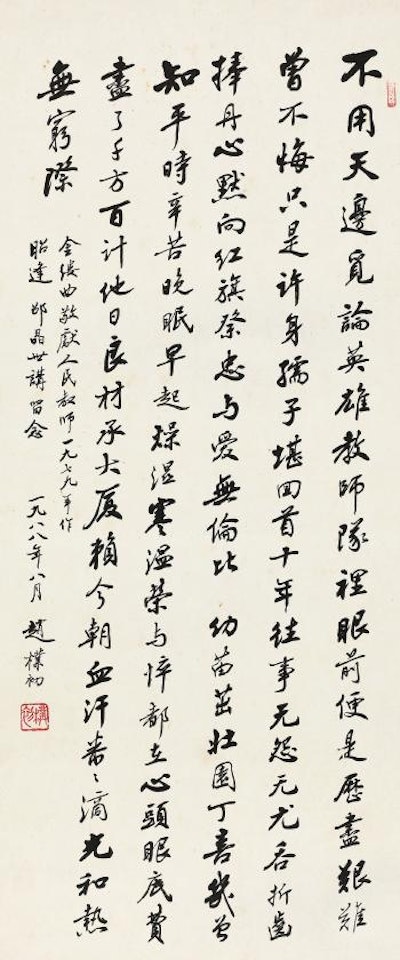 不用天邊覓論英雄教師隊裡眼前便是歷盡艱難
曾不悔只是許身孺子堪回首十年往事无怨无尤吞折齒
捧丹心默向紅旗祭忠与愛無倫比 幼苗茁壯園丁喜幾曾
知平時辛苦晚眠早起燥湿寒溫榮与悴都在心頭眼底費
盡了千方百計他日良材承大厦賴今朝血汗番〻滴光和熱
無窮際
金缕曲敬獻人民教师一九七九年作
昭達 邵晶世講留念 一九八八年八月 趙樸初